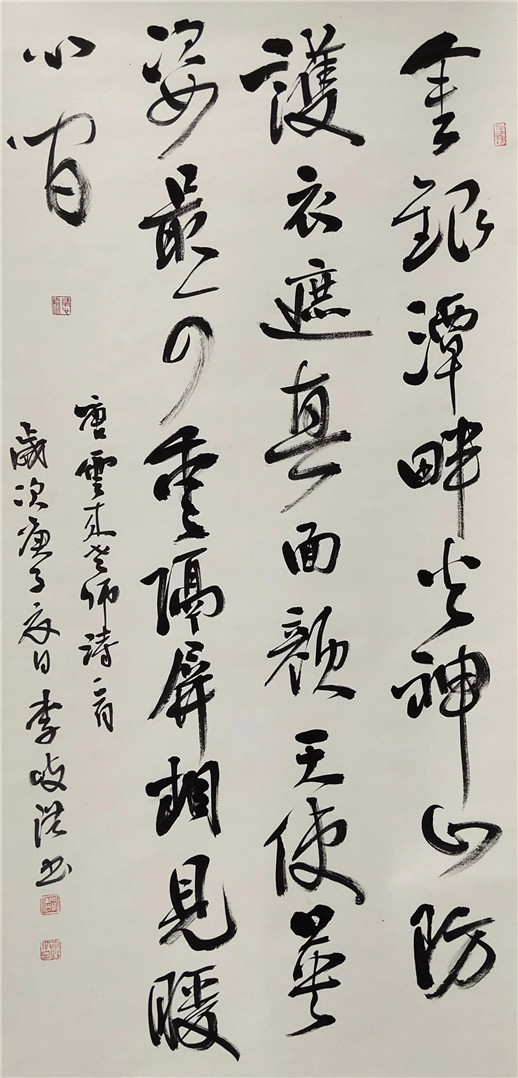 金銀潭畔火神山防
護衣遮真面顏天使英
姿最可愛隔屏相見暖
心间
唐雲來老師詩一首
歲次庚子夏日李书